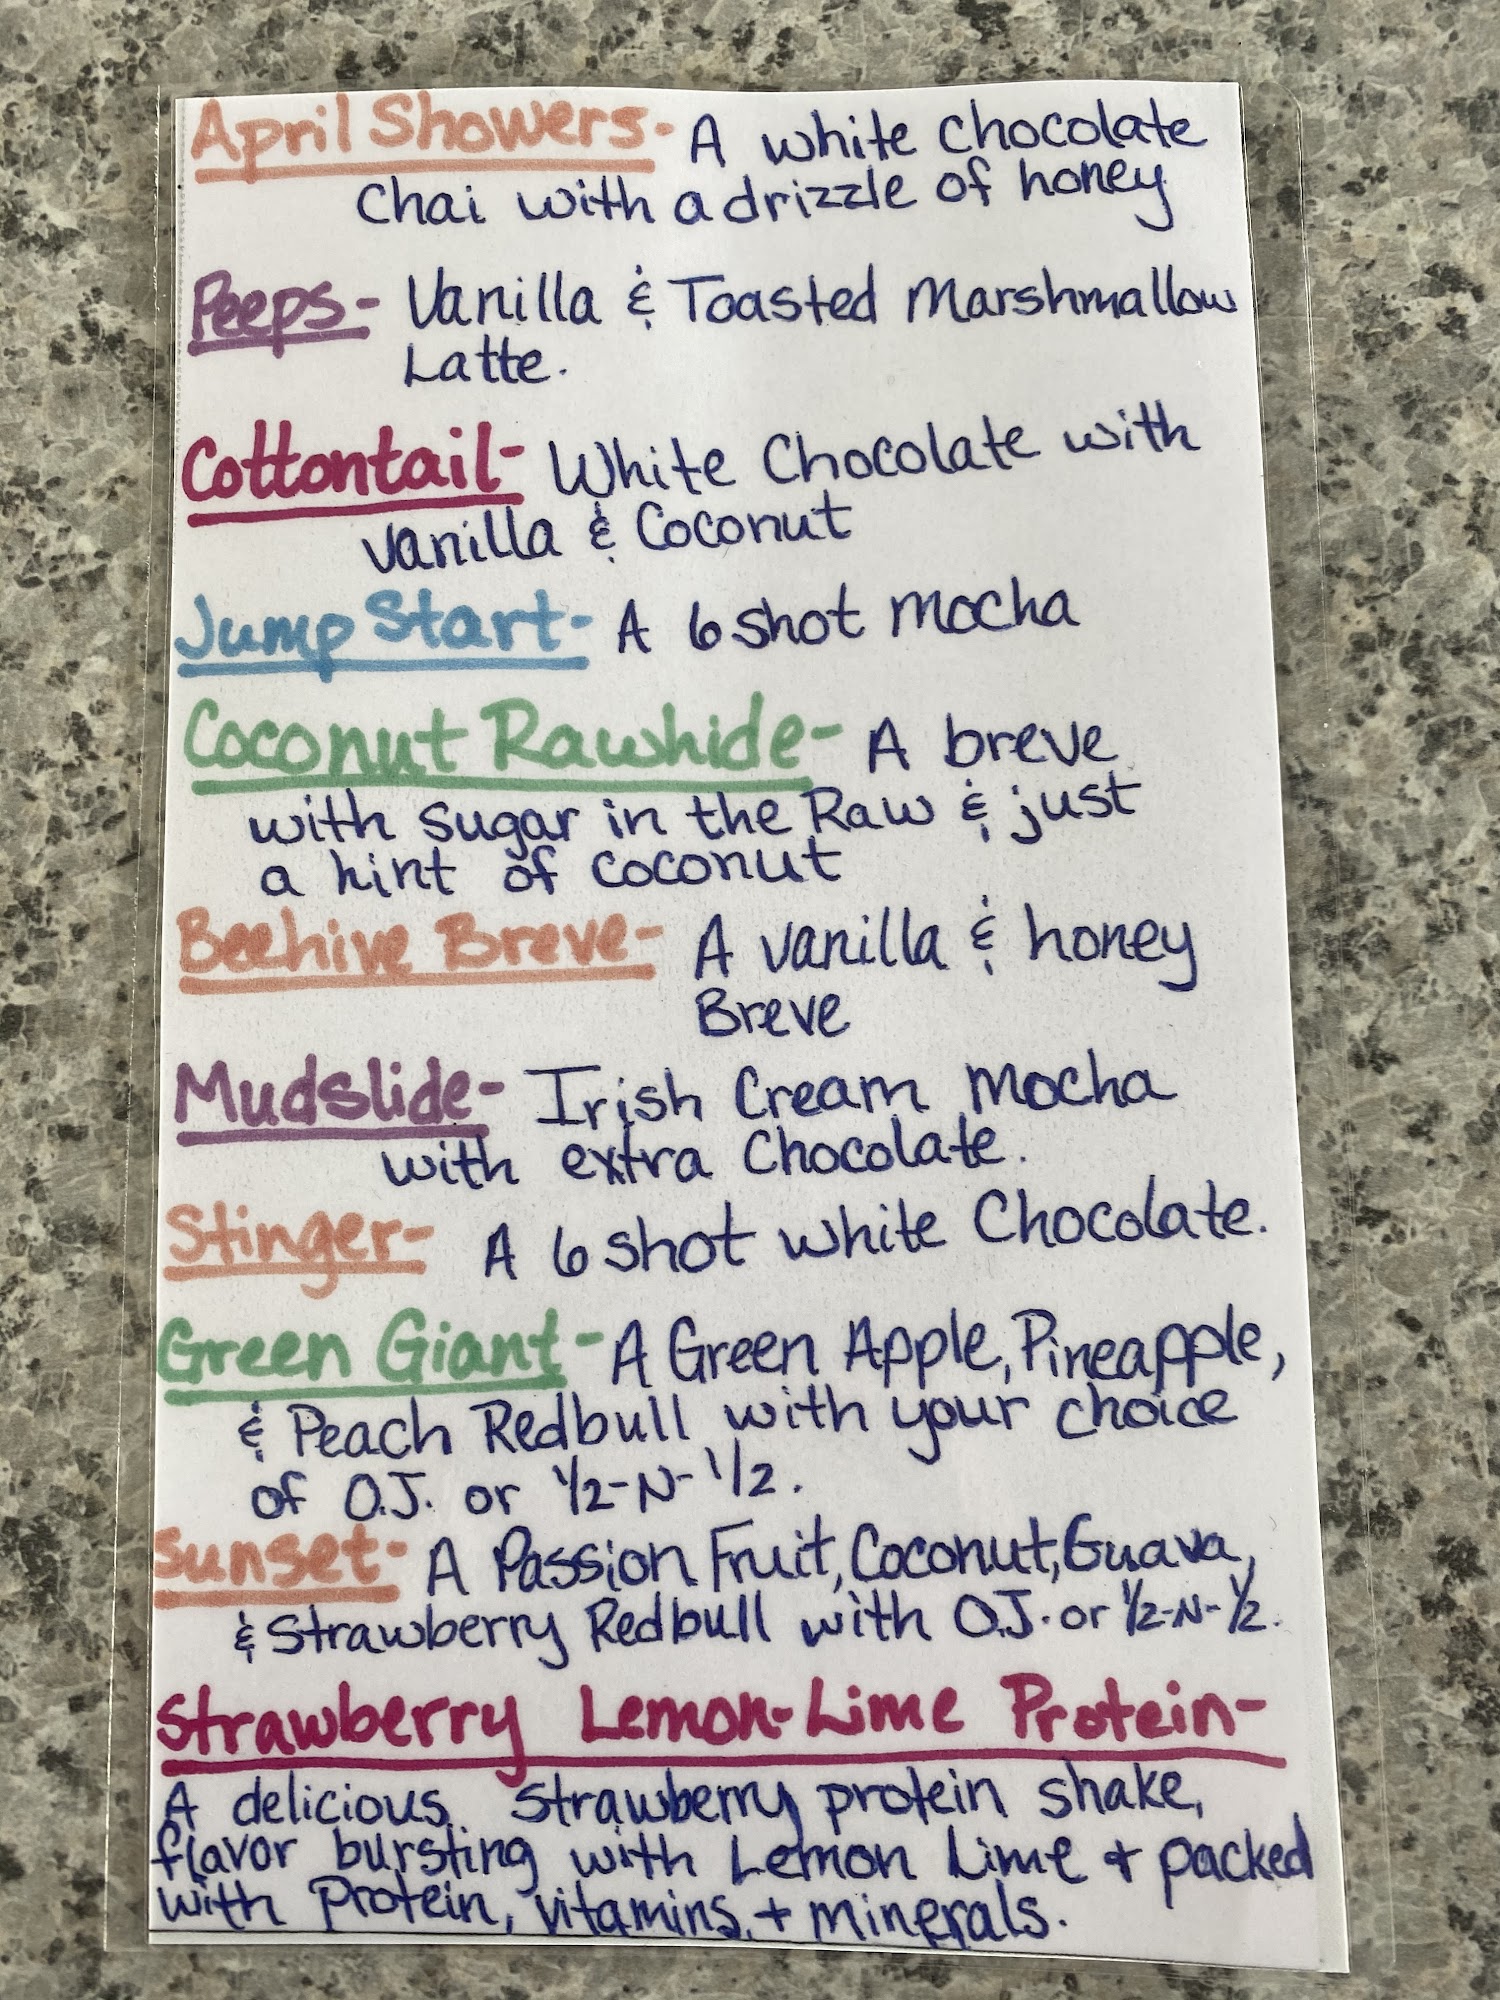 April Showers- A white chocolate
Chai with a drizzle of honey
Peeps- Vanilla & Toasted Marshmallow
Latte.
Cottontail- White Chocolate with
vanilla & Coconut
Jump Start- A 6 shot mocha
Coconut Rawhide- A breve
with sugar in the Raw & just
a hint of coconut
Beehive Breve- A vanilla & honey
Breve
Mudslide- Irish Cream Mocha
with extra Chocolate.
Stinger- A 6 shot white Chocolate.
Green Giant- A Green Apple, Pineapple,
& Peach Redbull with your choice
of O.J. or 1/2-N-1/2.
Sunset- A Passion Fruit, Coconut, Guava,
& Strawberry Redbull with O.J. or 1/2-N-1/2.
Strawberry Lemon-Lime Protein-
A delicious, strawberry protein shake,
flavor bursting with Lemon Lime + packed
with Protein, vitamins, + minerals.